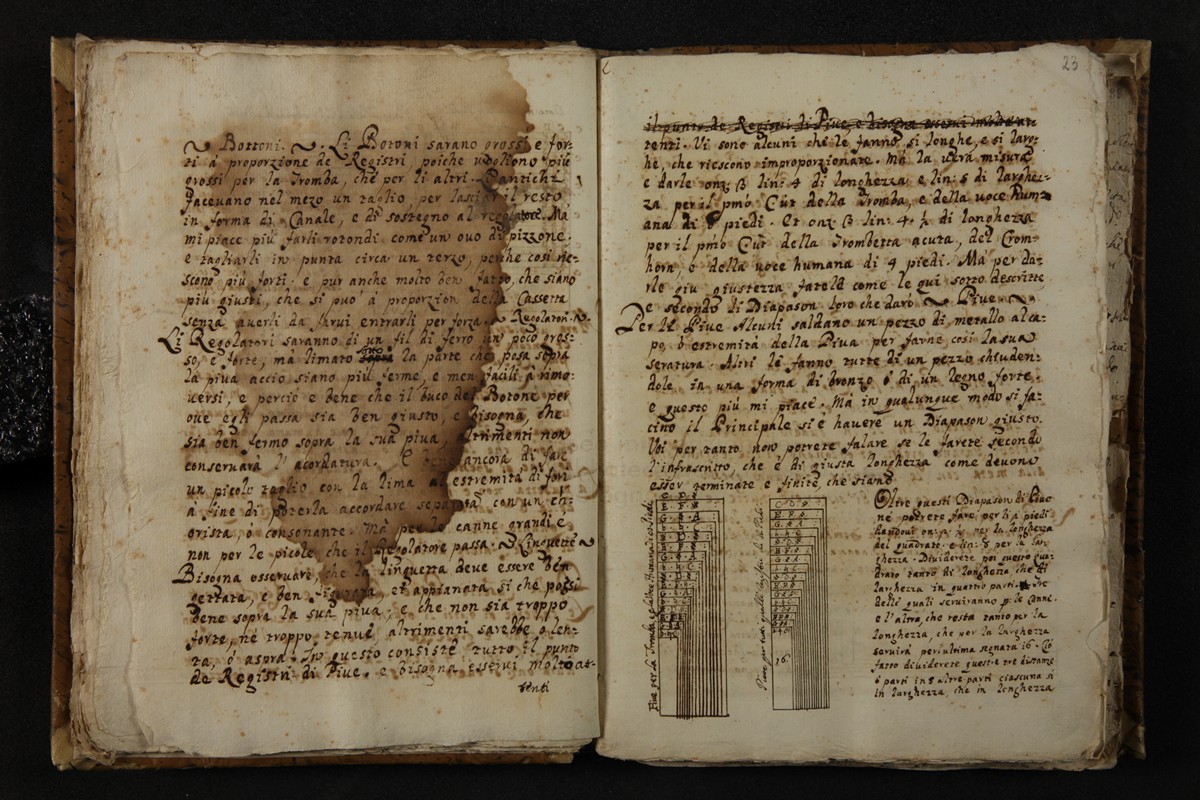 Bottoni. Li Botoni sarano grossi e for:
ti à proporzione de Registri, poiche vogliono piú
grossi per la Tromba, che per li altri. Gl'antichi
facevano nel mezo un taglio, per lasciar il resto
in forma di Canale, e di sostegno al regolatore. Mà
mi piace piú farli rotondi come un ovo di pizzone.
e tagliarli in punta circa un terzo, perche cosi rie:
scono piú forti. e pur anche molto ben fatto, che siano
piú giusti, che si può à proporzion della Cassetta
senza averli da farvi entrarli per forza. Regolatori.
Li Regolatori saranno di un fil di ferro un poco gros:
so, e forte, ma limato sotto la parte che posa sopra
la piva accio siano piú ferme, e men facili à rimo:
versi, e perciò e bene che il buco del Botone per
ove egli passa sia ben giusto, e bisogna, che
sia ben fermo sopra la sua piva, altrimenti non
conservarà l'acordatura. E bene ancora di far
un picolo taglio con la lima al estremità di fori
à fine di poterla accordare separata con un ch:
orista, ò consonante. Mà per le canne grandi e
non per le picole che il Regolatore passa. Linguette
Bisogna osservare, che la linguetta deve essere ben
gettata, e ben et appianata si che possi
bene sopra la sua piva, e che non sia troppo
forte, nè troppo tenue altrimenti sarebbe o len:
ta, ò aspra. In questo consiste tutto il punto
de Registri di Pive, e bisogna esservi molto at:
tenti
23
il punto de Registri di Pive, e bisogna esservi molto at:
tenti. Vi sono alcuni che le fanno si longhe, e si larg:
he, che riescono improporzionate. Mà la vera misura
e darle onz. 3 lin: 4 di longhezza e lin: 5 di larghez:
za per il pmo Cut della Tromba, e della voce hum:
ana di 8 piedi. Et onz 3 lin: 4 ½ di longhezza
per il pmo Cut della Trombetta acuta, del Crom:
horn, e della voce humana di 4 piedi. Mà per da:
rle giu giustezza fatele come le qui sotto descritte
e secondo il Diapason loro che darò. Pive.
Per le Pive Alcuni saldano un pezzo di metallo al ca:
po, ò estremità della Piva per farne cosi la sua
seratura. Altri le fanno tutte di un pezzo chiuden:
dole in una forma di bronzo ò di un legno forte.
e questo piú mi piace. Mà in qualunque modo si fa:
cino il Principale si è havere un Diapason giusto.
Voi per tanto non potrete falare se le farete secondo
l'infrascritto, che è di giusta longhezza come devono
esser terminate e finite, che siano
Pive per la Tromba e la Voce Humana di 8 Piedi
16.
Oltre questi Diapason di Pive
ne potrete fare per li 4 piedi
dandovi on: per la longhezza
del quadrato, e lin: 8 per la lar:
ghezza. Dividerete poi questo qua:
drato tanto di longhezza che di
larghezza in quatro parti. Tre
delle quali serviranno p: le Canne.
e l'altra, che resta tanto per la
longhezza, che per la larghezza
servirà per ultima segnata 16. Ciò
fatto dividerete queste tre distanze
ò parti in 8 altre parti ciascuna si
in larghezza, che in longhezza